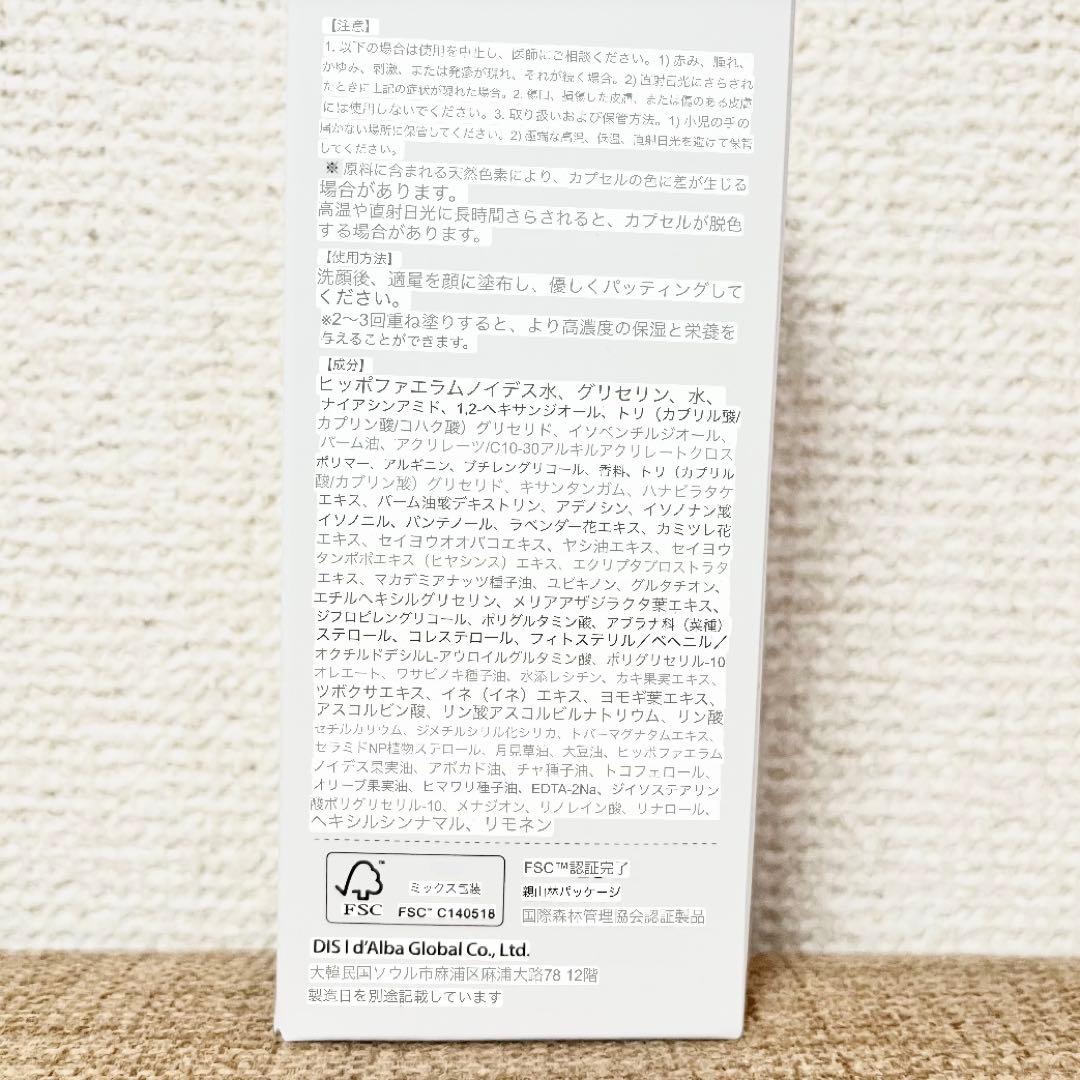 【注意】
1. 以下の場合は使用を中止し、医師にご相談ください。1) 赤み、腫れ、
かゆみ、刺激、または発疹が現れ、それが続く場合。2) 直射日光にさらされ
たときに上記の症状が現れた場合。2. 傷口、損傷した皮膚、または傷のある皮膚
には使用しないでください。3. 取り扱いおよび保管方法。1) 小児の手の
届かない場所に保管してください。2) 極端な高温、低温、直射日光を避けて保管
してください。
※ 原料に含まれる天然色素により、カプセルの色に差が生じる
場合があります。
高温や直射日光に長時間さらされると、カプセルが脱色
する場合があります。
【使用方法】
洗顔後、適量を顔に塗布し、優しくパッティングして
ください。
※2〜3回重ね塗りすると、より高濃度の保湿と栄養を
与えることができます。
【成分】
ヒッポファエラムノイデス水、グリセリン、水、
ナイアシンアミド、1,2-ヘキサンジオール、トリ（カプリル酸/
カプリン酸/コハク酸）グリセリド、イソペンチルジオール、
パーム油、アクリレーツ/C10-30アルキルアクリレートクロス
ポリマー、アルギニン、ブチレングリコール、香料、トリ（カプリル
酸/カプリン酸）グリセリド、キサンタンガム、ハナビラタケ
エキス、パーム油酸デキストリン、アデノシン、イソノナン酸
イソノニル、パンテノール、ラベンダー花エキス、カミツレ花
エキス、セイヨウオオバコエキス、ヤシ油エキス、セイヨウ
タンポポエキス（ヒヤシンス）エキス、エクリプタプロストラタ
エキス、マカデミアナッツ種子油、ユビキノン、グルタチオン、
エチルヘキシルグリセリン、メリアアザジラクタ葉エキス、
ジプロピレングリコール、ポリグルタミン酸、アブラナ科（菜種）
ステロール、コレステロール、フィトステリル／ベヘニル／
オクチルドデシルL-アウロイルグルタミン酸、ポリグリセリル-10
オレエート、ワサビノキ種子油、水添レシチン、カキ果実エキス、
ツボクサエキス、イネ（イネ）エキス、ヨモギ葉エキス、
アスコルビン酸、リン酸アスコルビルナトリウム、リン酸
セチルカリウム、ジメチルシリル化シリカ、トバーマグナタムエキス、
セラミドNP植物ステロール、月見草油、大豆油、ヒッポファエラム
ノイデス果実油、アボカド油、チャ種子油、トコフェロール、
オリーブ果実油、ヒマワリ種子油、EDTA-2Na、ジイソステアリン
酸ポリグリセリル-10、メナジオン、リノレイン酸、リナロール、
ヘキシルシンナマル、リモネン
FSC
ミックス包装
FSC™ C140518
FSC™認証完了
親山林パッケージ
国際森林管理協会認証製品
DIS l d’Alba Global Co., Ltd.
大韓民国ソウル市麻浦区麻浦大路78 12階
製造日を別途記載しています